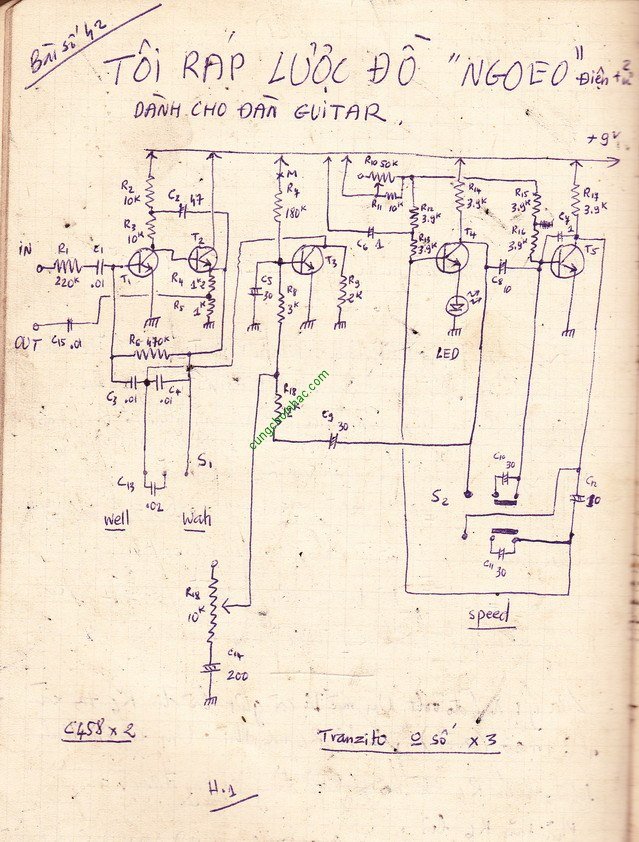 Bài số 42
TÔI RÁP LƯỢC ĐỒ "NGOEO"
Điện tử
DÀNH CHO ĐÀN GUITAR.
+9V
R10 50K
M
R2
10K
C2 47
R7
180K
R11 10K
R12
3.9K
R14
3.9K
R15
3.9K
R17
3.9K
R3
10K
C6 1
R13
3.9K
R16
3.9K
C7
1
iN
R1
220K
C1
.01
T1
T2
T3
T4
T5
R4
1K2
R5
1K
C5
30
R8
3K
R9
2K
C8
10
OUT
C15 .01
LED
R6 470K
C3 .01
C4
.01
R18
cungchoinhac.com
C9 30
S1
C13
.02
Well
Wah
S2
C10
30
C12
10
C11
30
speed
R18
10K
C14
200
C458 x 2
Tranzito o số x 3
H.1